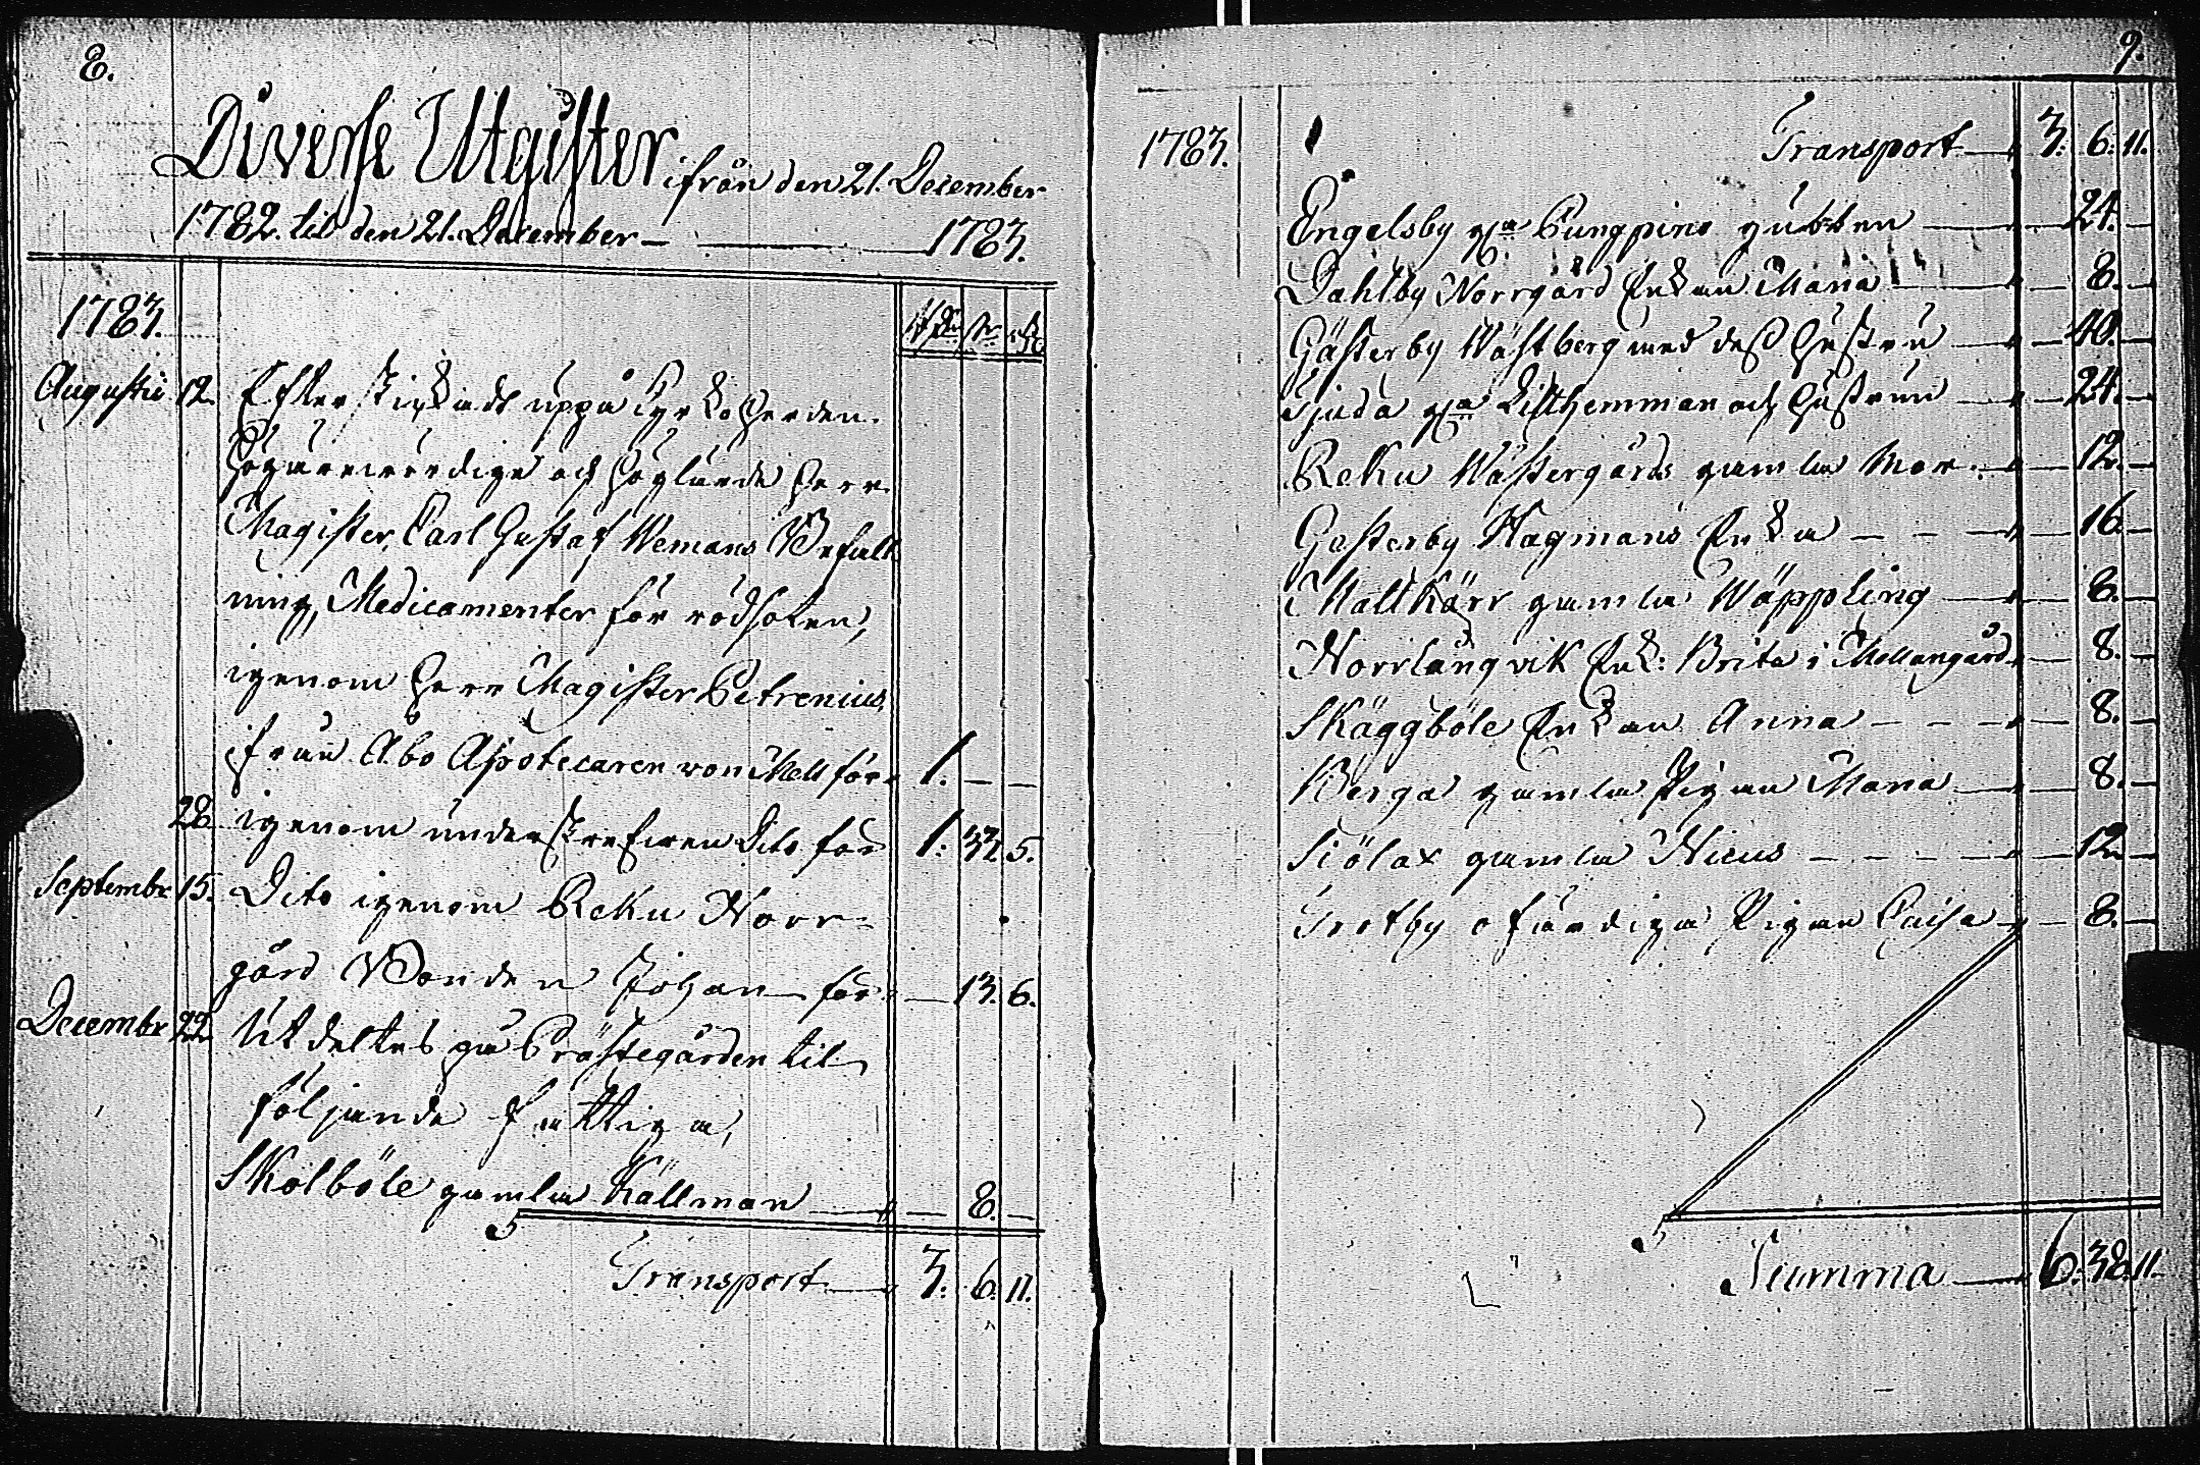 8.
Diverse Utgifter ifrån den 21. December
1782. til den 21. December — 1783.
1783.
Augustii 12. Efterskickade uppå Kyrkoherden
Högärewördige och Höglärde Herr
Magister Carl Gustaf Wemans Befall
ning, Medicamenter för rödsoten,
igenom Herr Magister Petrenius,
ifrån Åbo Apotecaren von Mell för 1. — —
28. igenom underskrefwen Dito för 1. 33. 5.
Septembr 15. Dito igenom Reku Norr-
gård Bonden Johan för — 13. 6.
Decembr 22. Utdeltes på Prästegården til
följande fattiga,
Skolböle gamla Källman — 8. —
Transport 3. 6. 11.
9.
1783. Transport 3. 6. 11.
Engelsby Pungpins gubben — 24. —
Dahlby Norrgård Enkan Maria — 8. —
Gästerby Wästberg med dess Hustru — 40. —
Sjuda Lillhemman och Hustrun — 24. —
Reku Wästergårds gamla Mor — 12. —
Gesterby Hagmans Enka — 16. —
Maltkärr gamla Wäppling — 8. —
Norrlångvik Enk: Brita i Mellangård — 8. —
Skäggböle Enkan Anna — 8. —
Berga gamla Pigan Maria — 8. —
Siölax gamla Nicus — 12. —
Trotby ofärdiga Pigan Caisa — 8. —
Summa 6. 38. 11.